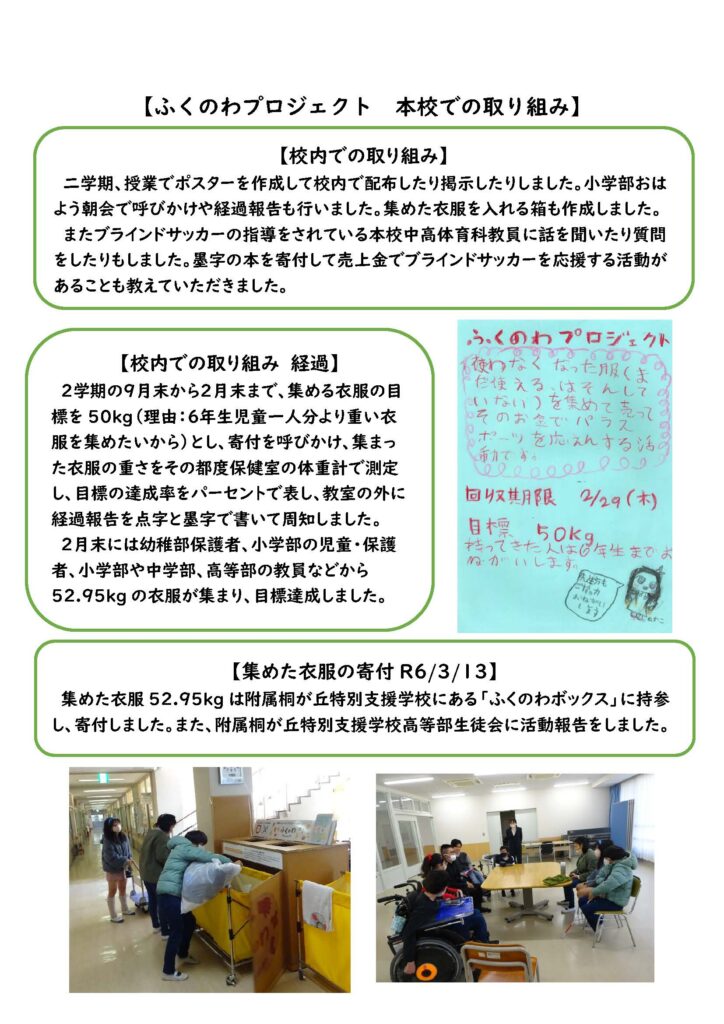 【ふくのわプロジェクト　本校での取り組み】
【校内での取り組み】
二学期、授業でポスターを作成して校内で配布したり掲示したりしました。小学部おは
よう朝会で呼びかけや経過報告も行いました。集めた衣服を入れる箱も作成しました。
またブラインドサッカーの指導をされている本校中高体育科教員に話を聞いたり質問
をしたりもしました。墨字の本を寄付して売上金でブラインドサッカーを応援する活動が
あることも教えていただきました。
【校内での取り組み 経過】
2学期の9月末から2月末まで、集める衣服の目
標を50kg(理由:6年生児童一人分より重い衣
服を集めたいから)とし、寄付を呼びかけ、集まっ
た衣服の重さをその都度保健室の体重計で測定
し、目標の達成率をパーセントで表し、教室の外に
経過報告を点字と墨字で書いて周知しました。
2月末には幼稚部保護者、小学部の児童・保護
者、小学部や中学部、高等部の教員などから
52.95kgの衣服が集まり、目標達成しました。
ふくのわプロジェクト
使わなくなった服(ま
だ使える、はそんして
いない)を集めて売って
そのお金でパラス
ポーツを応えんする活
動です。
回収期限 2/29(木)
目標 50kg
持ってきた人は6年生までお
ねがいします。
【集めた衣服の寄付 R6/3/13】
集めた衣服52.95kgは附属桐が丘特別支援学校にある「ふくのわボックス」に持参
し、寄付しました。また、附属桐が丘特別支援学校高等部生徒会に活動報告をしました。